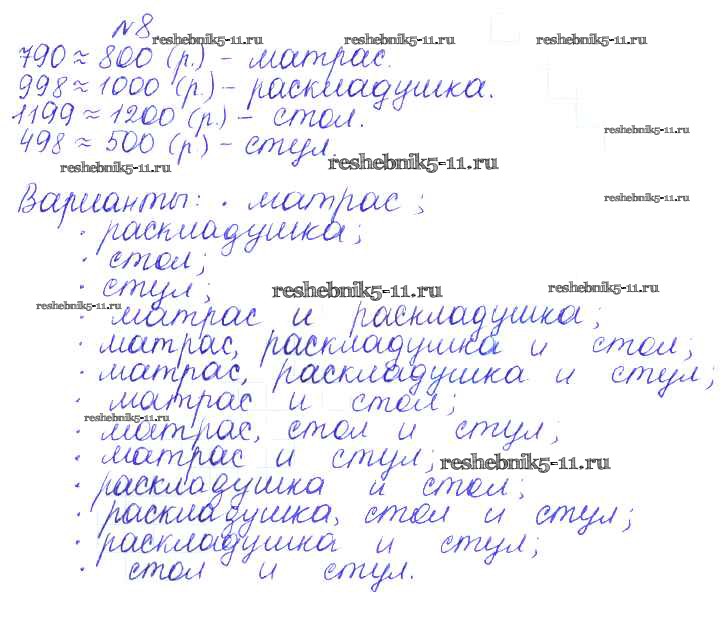 №8
reshebnik5-11.ru reshebnik5-11.ru reshebnik5-11.ru
790 ≈ 800 (р.) – матрас.
998 ≈ 1000 (р.) – раскладушка.
1199 ≈ 1200 (р.) – стол.
reshebnik5-11.ru
498 ≈ 500 (р.) – стул.
reshebnik5-11.ru reshebnik5-11.ru
Варианты: · матрас;
reshebnik5-11.ru
· раскладушка;
· стол;
· стул;
reshebnik5-11.ru reshebnik5-11.ru
reshebnik5-11.ru
· матрас и раскладушка;
· матрас, раскладушка и стол;
· матрас, раскладушка и стул;
· матрас и стол;
reshebnik5-11.ru
· матрас, стол и стул;
· матрас и стул;
reshebnik5-11.ru
· раскладушка и стол;
· раскладушка, стол и стул;
· раскладушка и стул;
· стол и стул.